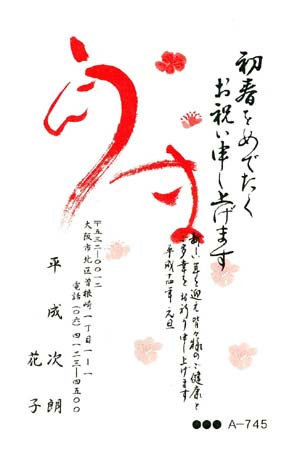 初春をめでたく
お祝い申し上げます
うま
新しい年を迎え皆々様のご健康と
ご多幸をお祈り申し上げます
平成十四年 元旦
〒五三二-〇〇一二
大阪市北区曽根崎一丁目一-一
電話(〇六)四一二三-四五〇〇
平成 次朗
花子
●●● A-745